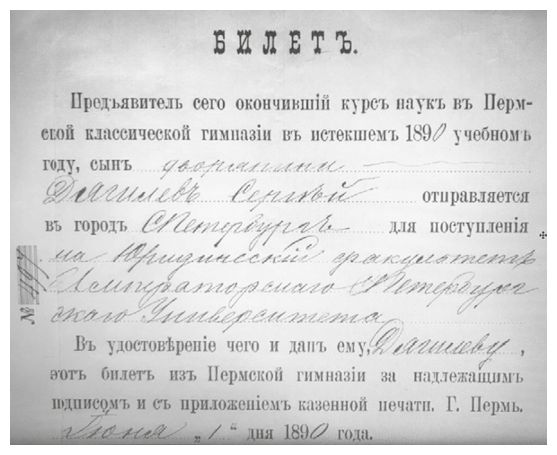 БИЛЕТЪ.
Предъявитель сего окончившiй курсъ наукъ въ Перм-
ской классической гимназiи въ истекшемъ 1890 учебномъ
году, сынъ дворянина
Дягилевъ Сергѣй отправляется
въ городъ СПетербургъ для поступленiя
на Юридическiй факультетъ
Императорскаго СПетербург
скаго Университета
№
Въ удостовѣренiе чего и данъ ему, Дягилеву,
этотъ билетъ изъ Пермской гимназiи за надлежащимъ
подписомъ и съ приложенiемъ казенной печати. Г. Пермь.
Iюня „1" дня 1890 года.